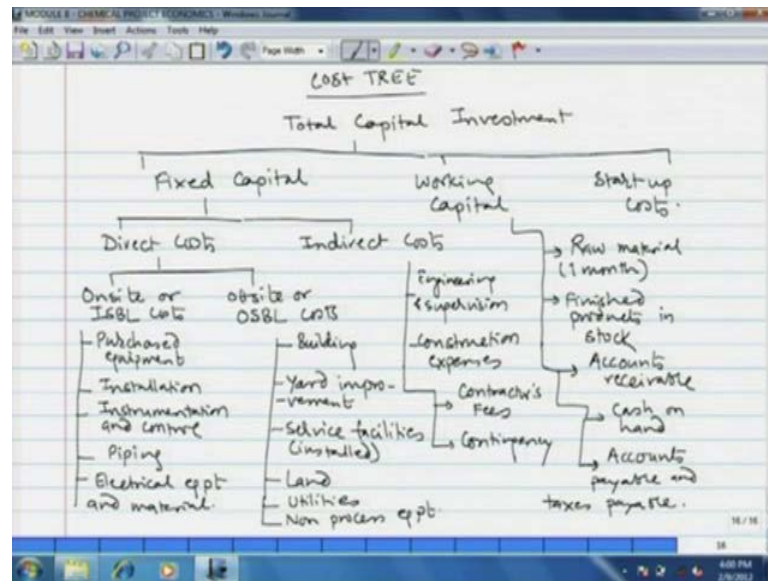 MODULE 8 - CHEMICAL PROJECT ECONOMICS - Windows Journal
File Edit View Insert Actions Tools Help
Page Width
COST TREE
Total Capital Investment
Fixed Capital
Working Capital
Start up Costs.
Direct Costs
Indirect Costs
Onsite or
ISBL Costs
Purchased
equipment
Installation
Instrumentation
and control
Piping
Electrical eqpt
and material.
Offsite or
OSBL Costs
Building
Yard impro-
-vement
Service facilities
(installed)
Land
Utilities
Non process eqpt.
Engineering
& supervision
Construction
expenses
Contractor's
Fees
Contingency
Raw material
(1 month)
Finished
products in
stock
Accounts
receivable
Cash on
hand
Accounts
payable and
taxes payable.
16 / 16
16
4:00 PM
2/8/2012